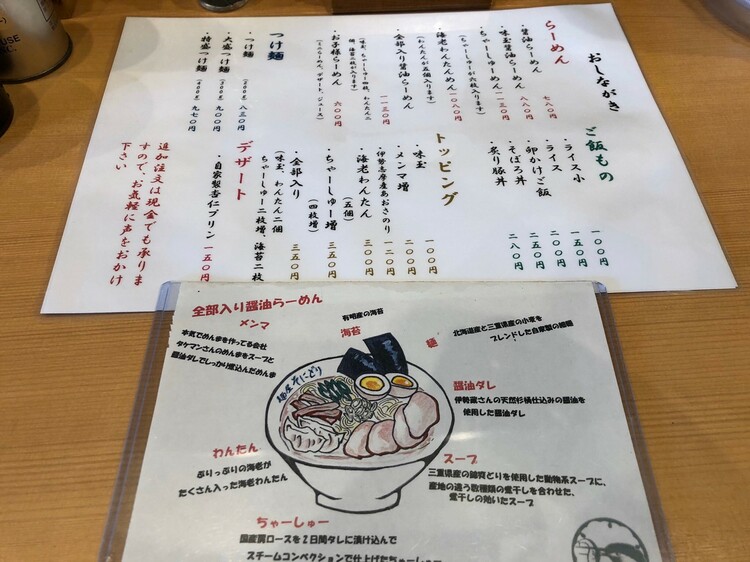 おしながき
らーめん
・醤油らーめん 七八〇円
・味玉醤油らーめん 八八〇円
・ちゃーしゅーめん 一一三〇円
(ちゃーしゅーが六枚入ります)
・海老わんたんめん 一〇八〇円
(わんたんが五個入ります)
・全部入り醤油らーめん 一一三〇円
・お子様らーめん 六〇〇円
(ミニらーめん、デザート、ジュース)
つけ麺
・つけ麺 八三〇円
・大盛つけ麺 九〇〇円
・特盛つけ麺 九七〇円
ご飯もの
・ライス小 一〇〇円
・ライス 一五〇円
・卵かけご飯 二〇〇円
・そぼろ丼 二五〇円
・炙り豚丼 二八〇円
トッピング
・味玉 一〇〇円
・メンマ増 二〇〇円
・伊勢志摩産あおさのり 一二〇円
・海老わんたん 三〇〇円
(五個)
・ちゃーしゅー増 三五〇円
(四枚)
・全部入り 三五〇円
(味玉、わんたん二個
ちゃーしゅー二枚増、海苔二枚
デザート
・自家製杏仁プリン 一五〇円
追加注文は現金でも承りま
すので、お気軽に声をおかけ
下さい
全部入り醤油らーめん
メンマ
本気でめんまを作ってる会社
タケマンさんのめんまをスープと
醤油ダレでしっかり煮込んだめんま
有明産の海苔
海苔
麺
北海道産と三重県産の小麦を
ブレンドした自家製の麺
麺屋そにどり
醤油ダレ
伊勢蔵さんの天然杉桶仕込みの醤油を
使用した醤油ダレ
わんたん
ぷりっぷりの海老が
たくさん入った海老わんたん
スープ
三重県産の錦爽どりを使用した動物系スープに、
産地の違う数種類の煮干しを合わせた、
煮干しの効いたスープ
ちゃーしゅー
国産肩ロースを2日間タレに漬け込んで
スチームコンベクションで仕上げたちゃーしゅー